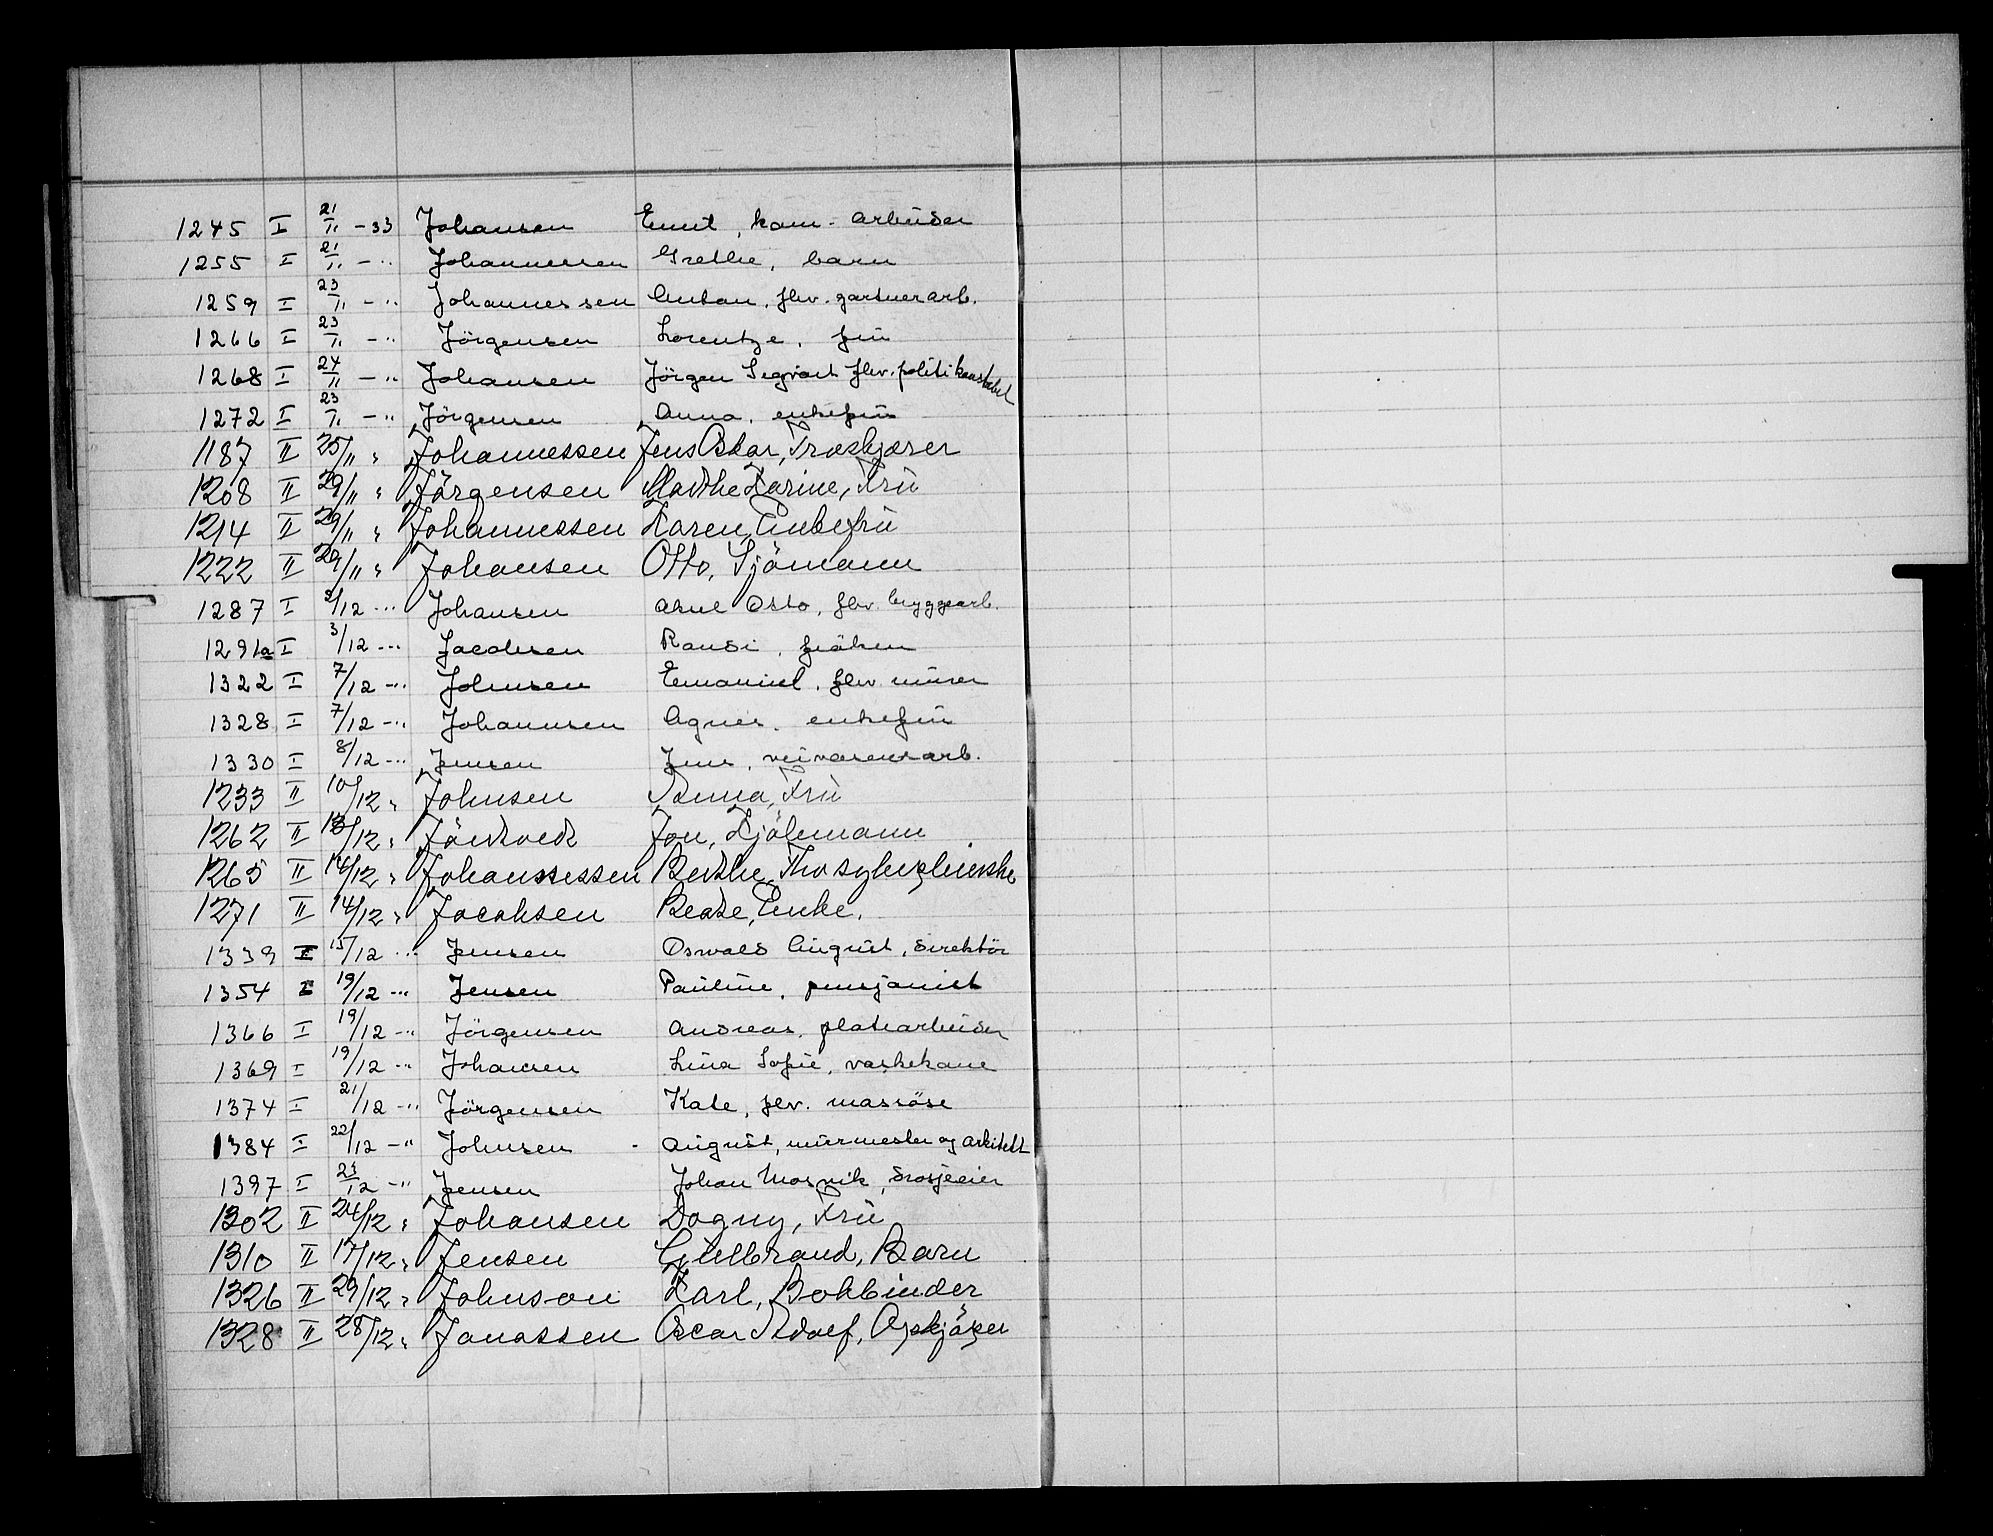 1245 I 21/11 - 33 Johansen Emil, kom. arbeider
1255 I 21/11 - " Johannessen Grethe, barn
1259 I 23/11 - " Johannessen Anton, fhv. gartnerarb.
1266 I 23/11 - " Jörgensen Lorentze, frü
1268 I 24/11 - " Johansen Jörgen Sigvart fhv. politikonstabel
1272 I 23/11 - " Jörgensen Anna, enkefrü
1187 II 25/11 " Johannessen Jens Oskar, Træskjærer
1208 II 29/11 " Jörgensen Marthe Karine, Frü
1214 II 29/11 " Johannessen Karen, Enkefrü
1222 II 29/11 " Johansen Otto, Sjömann
1287 I 2/12 - " Johansen Otto, fhv. bryggearb.
1291a I 3/12 - " Jacobsen Randi, fröken
1322 I 7/12 - " Johnsen Emanuel, fhv. mürer
1328 I 7/12 - " Johannsen Agnes, enkefrü
1330 I 8/12 - " Jensen Jens, veivesenarb.
1233 II 10/12 " Johnsen Anna, Frü
1262 II 13/12 " Jon, Kjöbmann
1265 II 14/12 " Johanssessen Berthe,
1271 II 14/12 " Jacobsen Beate, Enke.
1339 I 15/12 " Jensen Osvald Aügüst, direktör
1354 I 19/12 - " Jensen Paüline, pensjonist
1366 I 19/12 - " Jörgensen Andreas, platearbeider
1369 I 19/12 - " Johansen Lina Sofie, vaskekone
1374 I 21/12 - " Jörgensen Kate, fhv. massöse
1384 I 22/12 - " Johnsen - Aügüst, mürmester og arkitekt
1397 I 23/12 - " Jensen Johan Mosvik, drosjeeier
1302 II 24/12 " Johansen Dagny, Frü
1310 II 17/12 " Jensen Gülbrand, Barn
1326 II 29/12 " Johnson Karl, Bokbinder
1328 II 28/12 " Jonassen Oscar Adolf, Opskjöper